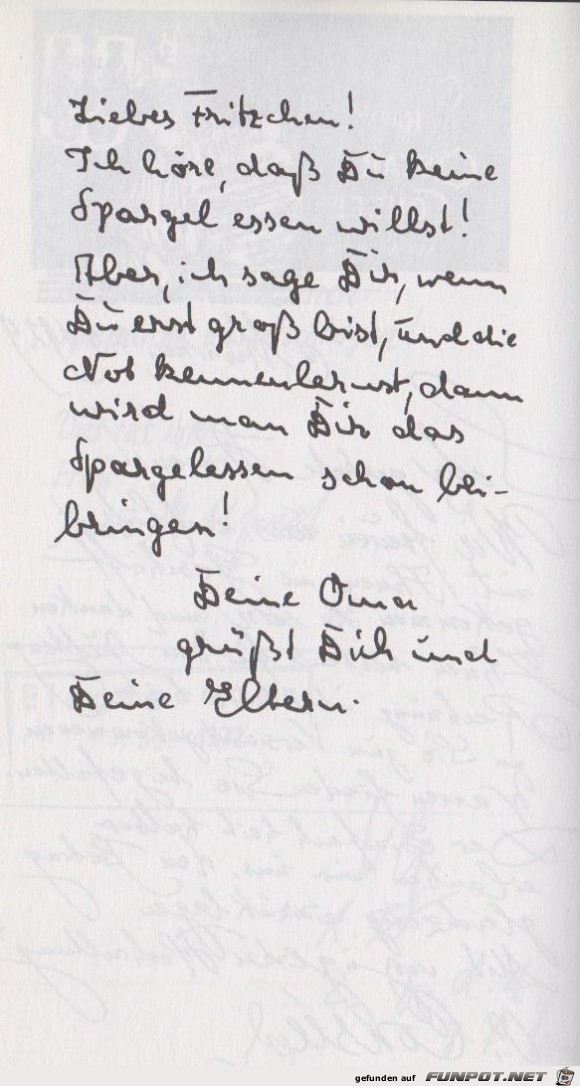 Liebes Fritzchen!
Ich höre, daß Du keine
Spargel essen willst!
Aber, ich sage Dir, wenn
Du erst groß bist, und die
Not kennenlernst, dann
wird man Dir das
Spargelessen schon bei-
bringen!
Deine Oma
grüßt Dich und
Deine Eltern.
gefunden auf FUNPOT.NET